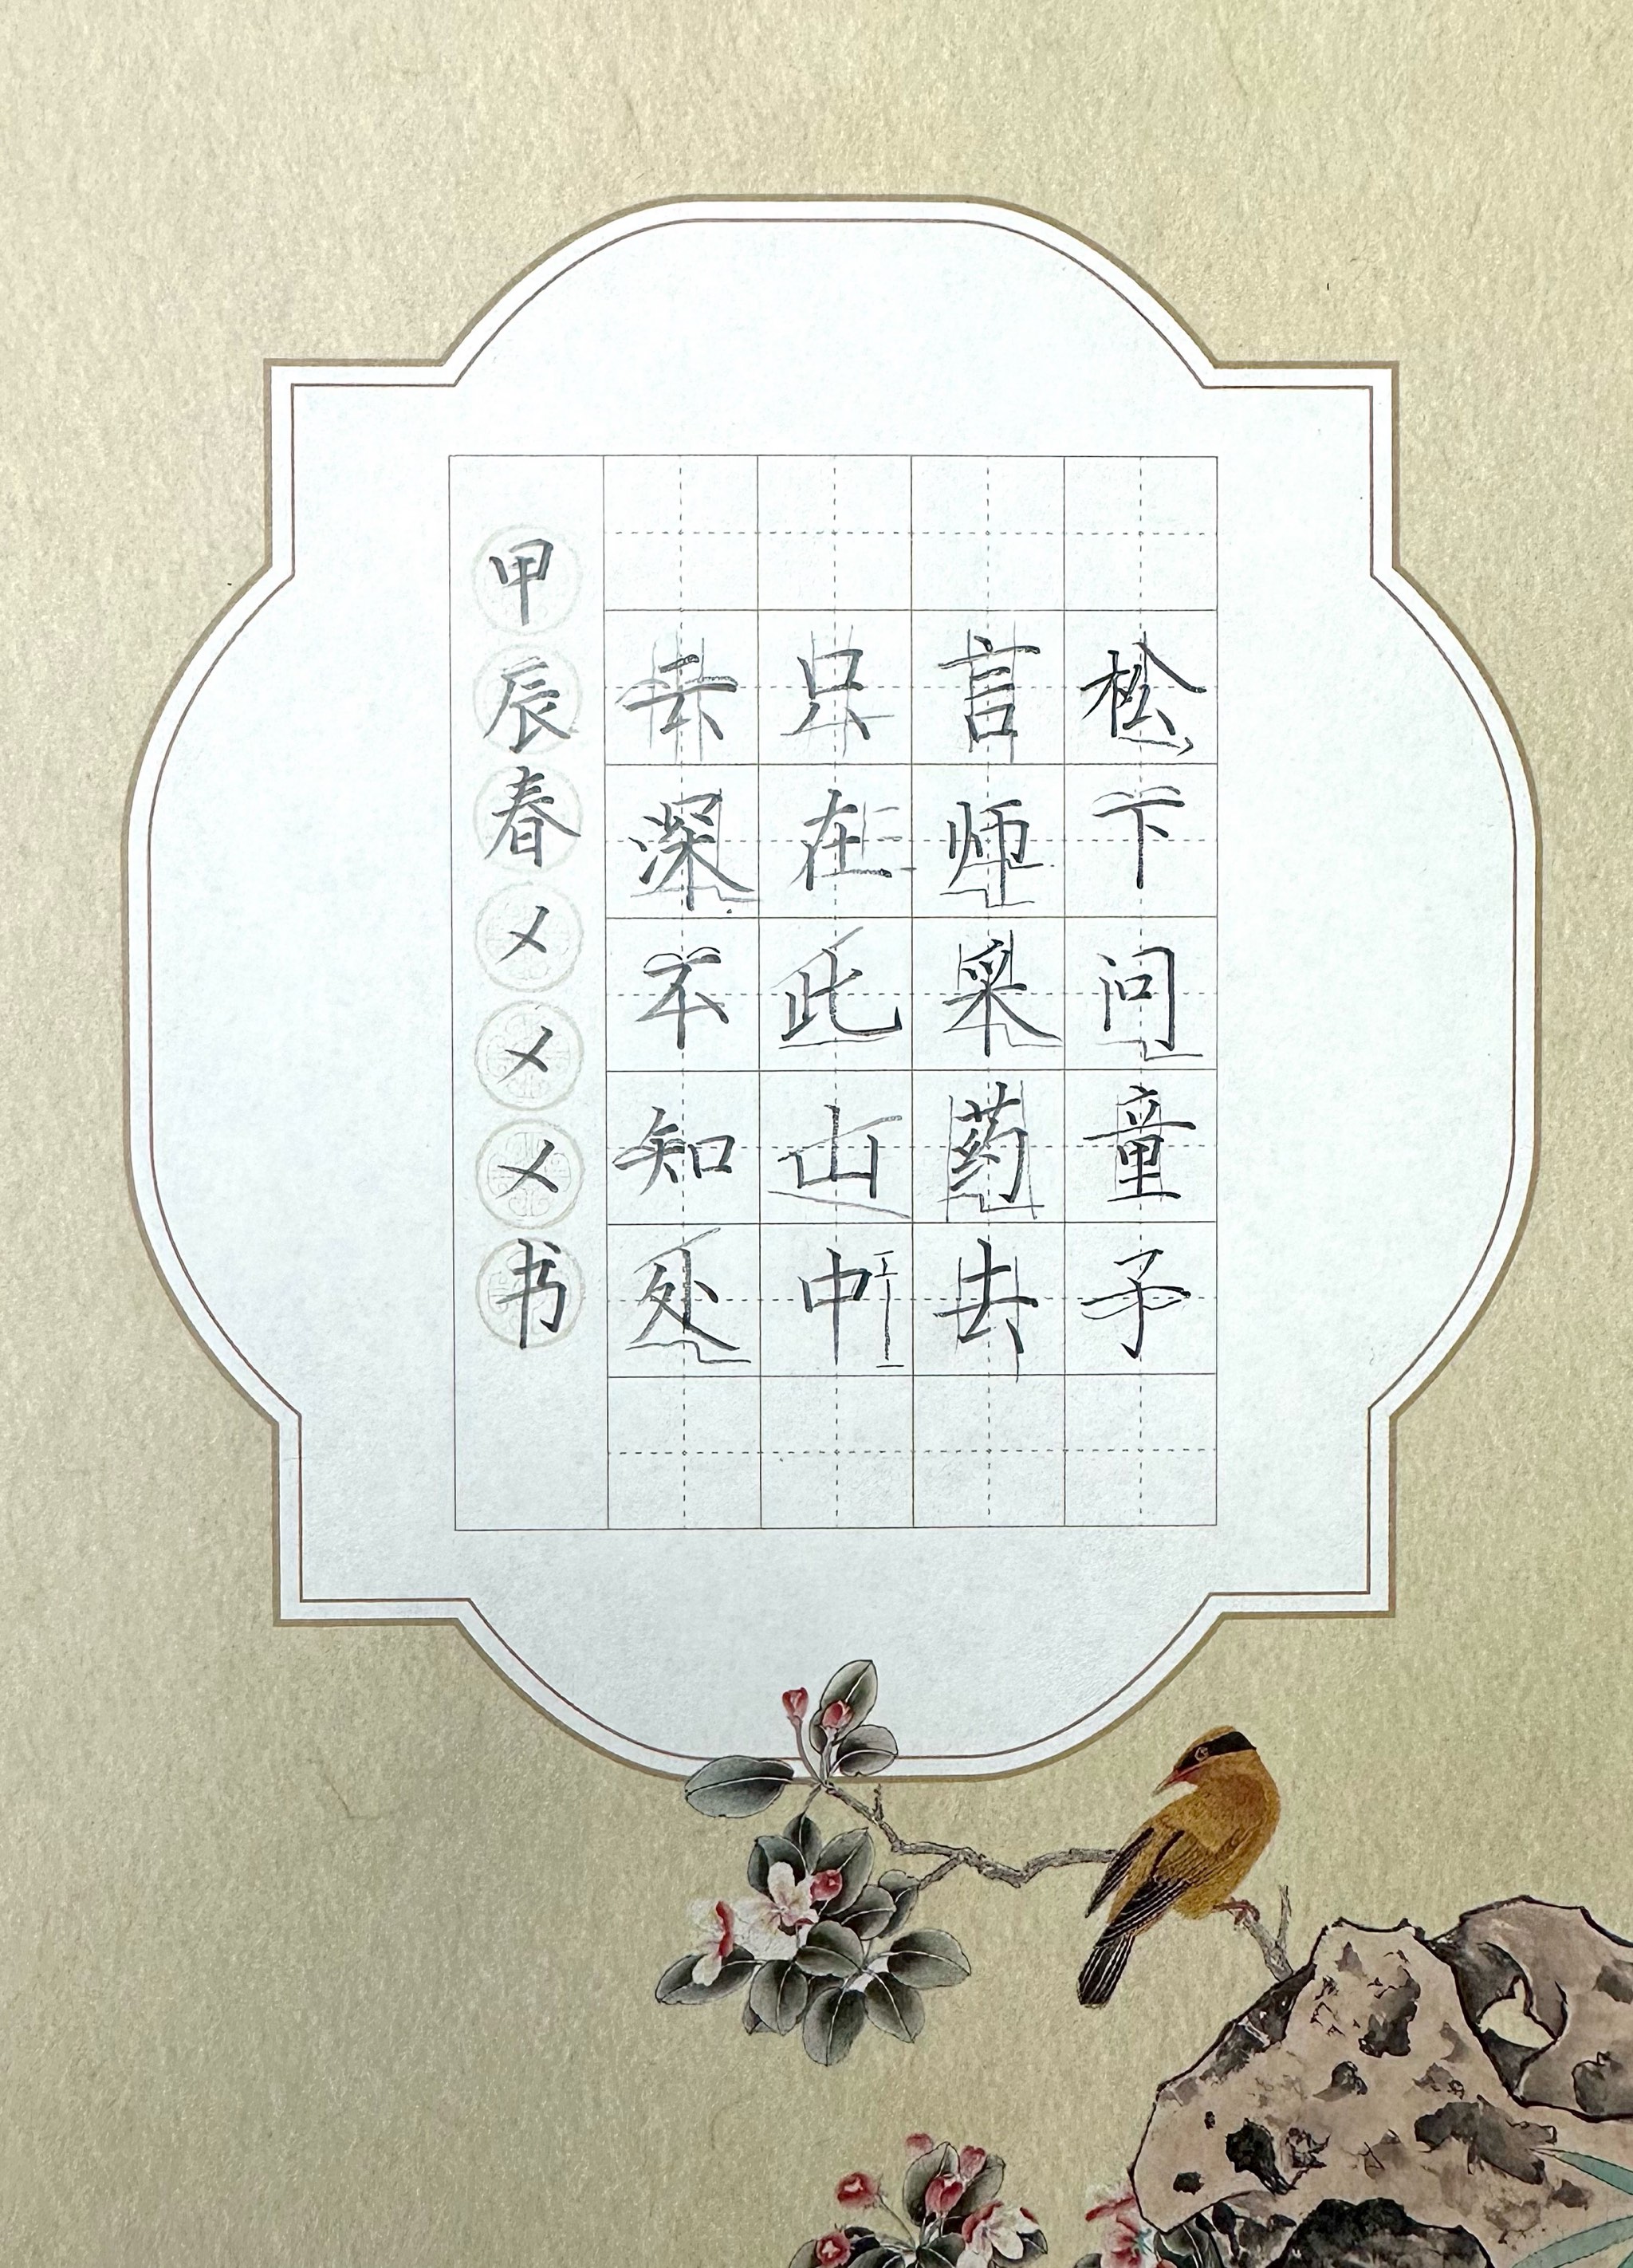 松下问童子
言师采药去
只在此山中
云深不知处
甲辰春㐅㐅㐅书